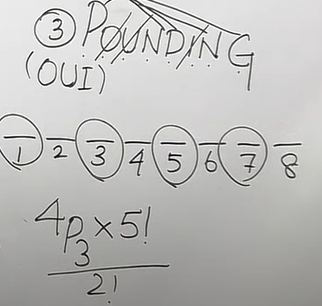 ③ POUNDING
(OUI)
1 2 3 4 5 6 7 8
4P3 × 5!
2!